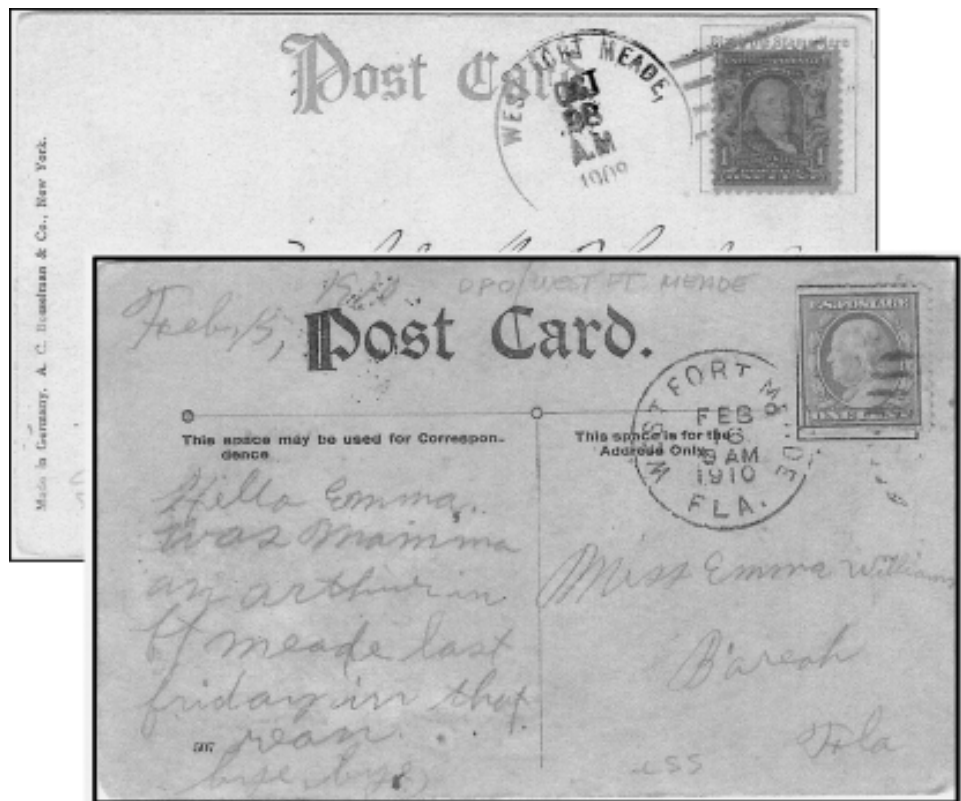 Post Card
WEST FORT MEADE,
A.M
Made in Germany. A. C. Bosselman & Co., New York.
1
1
1910 DPO/WEST FT. MEADE
Feby 5,
Post Card.
U.S. POSTAGE
WEST FORT MEADE
FEB
6
9 AM
1910
FLA.
This space may be used for Correspon-
dence
This space is for the
Address Only.
Hello Emma,
was Mamma
an arthur in
ft meade last
friday in that
rean
bye bye,
507
Miss Emma Williams
Bareah
Fla